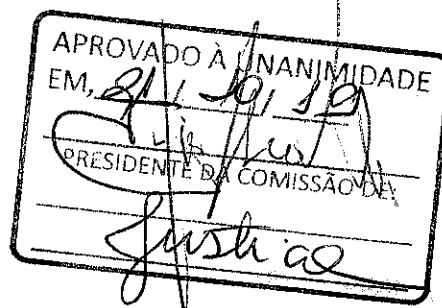 APROVADO À UNANIMIDADE
EM, 21, 10, 19
PRESIDENTE DA COMISSÃO DE:
Justiça